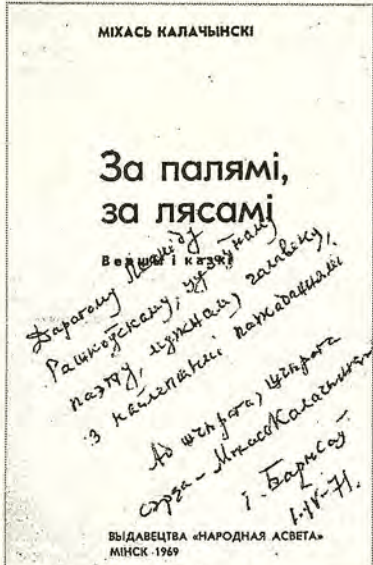 МІХАСЬ КАЛАЧЫНСКІ
За палямі,
за лясамі
Вершы і казкі
Дарагому Леаніду
Рашкоўскаму, цудоўнаму
паэту, мужнаму чалавіку,
з найлепшымі пажаданнямі
Ад шчырага, шчырага
сэрца – Міхась Калачынскі
г. Барысаў
ВЫДАВЕЦТВА «НАРОДНАЯ АСВЕТА»
МІНСК 1969